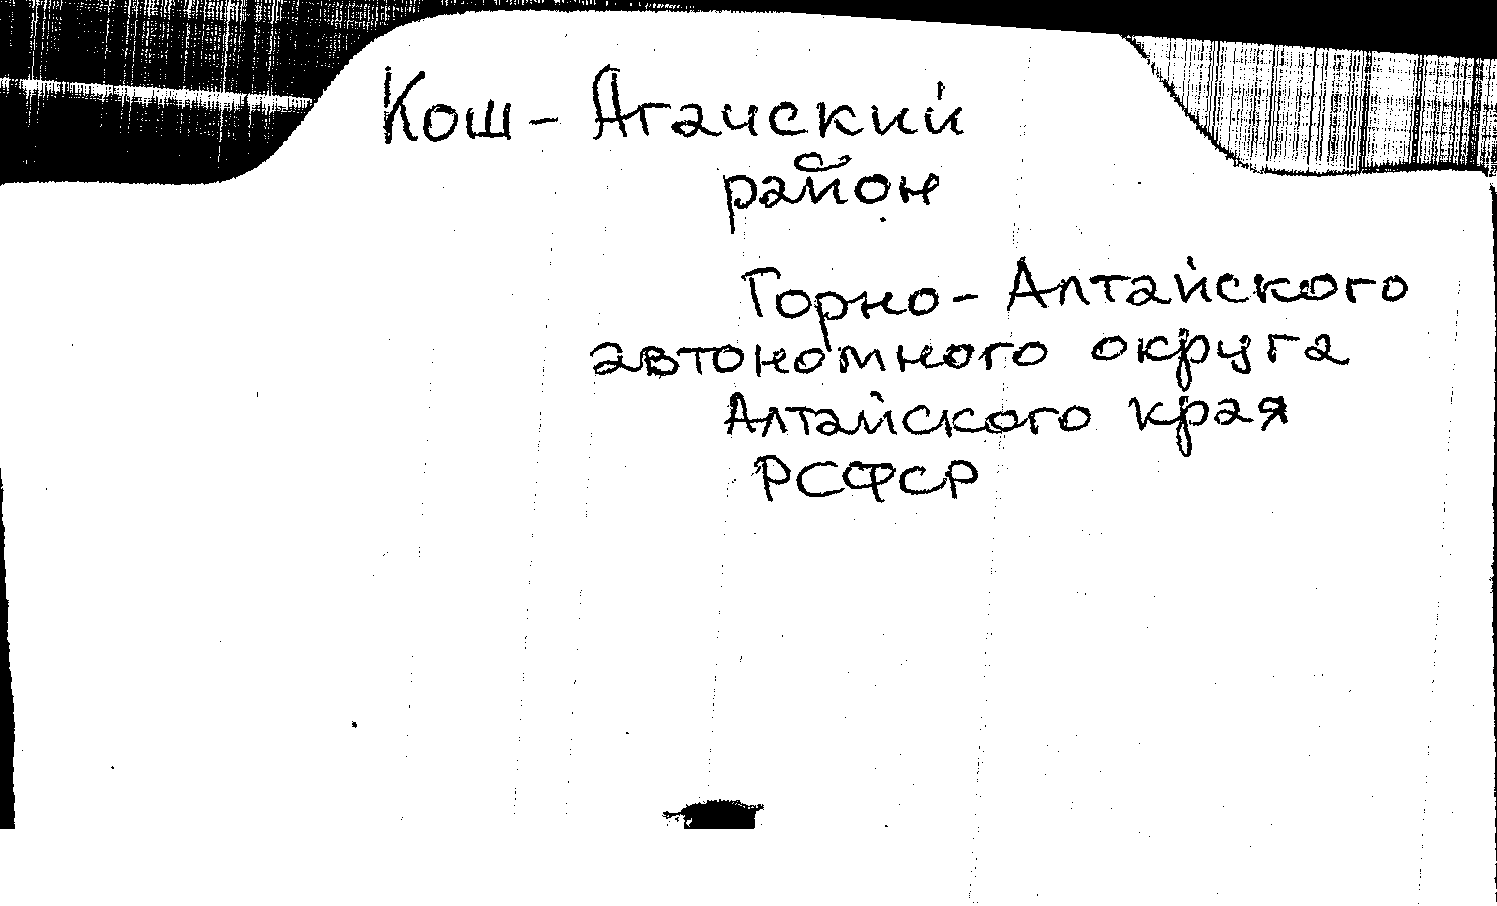 Кош-Агачский
район
Горно-Алтайского
автономного округа
Алтайского края
РСФСР